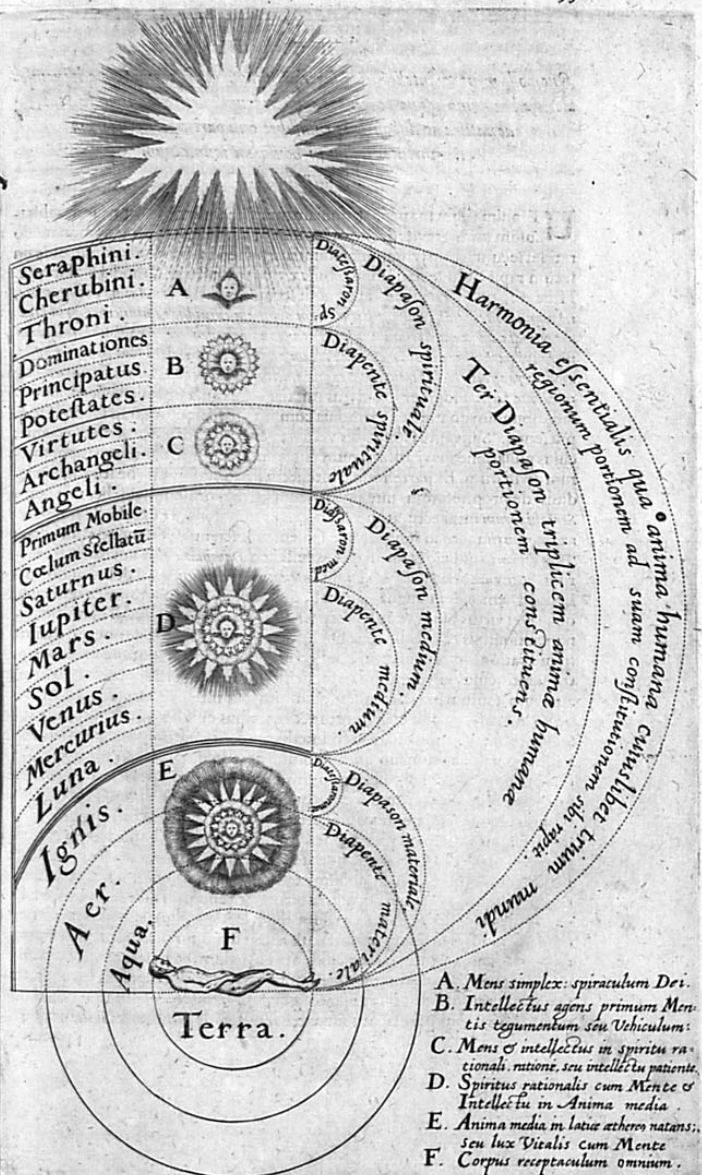 Seraphini.
Cherubini.
Throni.
Dominationes
Principatus.
Potestates.
Virtutes.
Archangeli.
Angeli.
Primum Mobile.
Cœlum Stellatū
Saturnus.
Iupiter.
Mars.
Sol.
Venus.
Mercurius.
Luna.
Ignis.
Aer.
Aqua.
Terra.
A
B
C
D
E
F
Diatessaron sp
Diapason spirituale.
Diapente spirituale
Diapason medium.
Diapente medium.
Diapason materiale
Diapente materiale.
Harmonia essentialis qua anima humana cuiuslibet trium mundi
regionum portionem ad suam constitutionem sibi rapit.
Ter Diapason triplicem animæ humanæ
portionem constituens.
A. Mens simplex: spiraculum Dei.
B. Intellectus agens primum Men-
tis tegumentum seu Vehiculum:
C. Mens & intellectus in spiritu ra-
tionali, ratione, seu intellectu patiente.
D. Spiritus rationalis cum Mente &
Intellectu in Anima media.
E. Anima media in latice æthereo natans;
seu lux Vitalis cum Mente
F. Corpus receptaculum omnium.